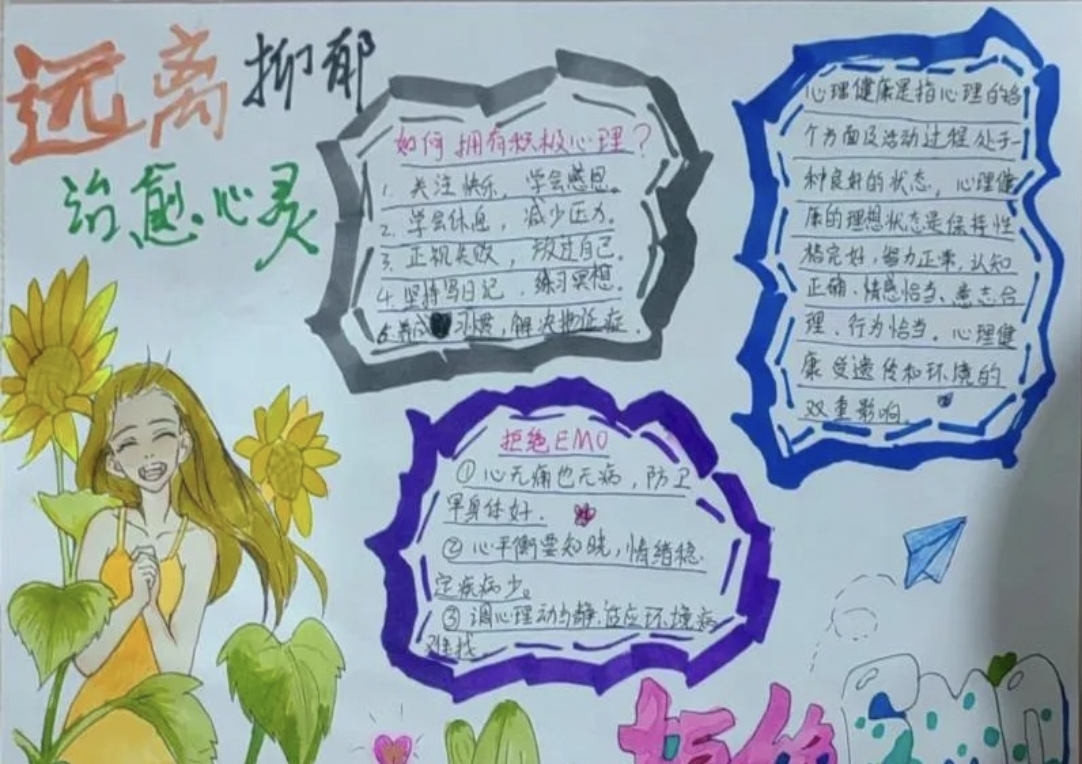 远离抑郁
治愈心灵
如何拥有积极心理？
1. 关注快乐，学会感恩。
2. 学会休息，减少压力。
3. 正视失败，放过自己。
4. 坚持写日记，练习冥想。
习惯，解决拖延症．
拒绝EMO
① 心无痛也无病，防卫
早身体好．
② 心平衡要知晓，情绪稳
定疾病少。
③ 调心理动与静，适应环境病
难找
心理健康是指心理的各
个方面及活动过程处于一
种良好的状态，心理健
康的理想状态是保持性
格完好，智力正常，认知
正确、情感恰当、意志合
理、行为恰当。心理健
康受遗传和环境的
双重影响．
拒绝